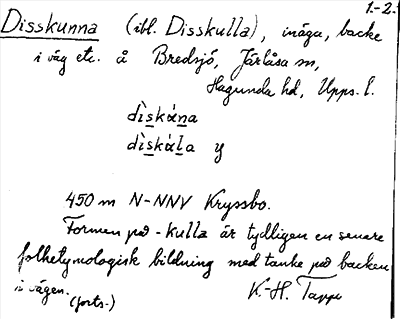 1.-2.
Disskunna (ibl. Disskulla), inäga, backe
i väg etc. å Bredsjö, Järlåsa sn,
Hagunda hd, Upps. l.
dìskána
dìskála y
450 m N-NNV Kryssbo.
Formen på -kulla är tydligen en senare
folketymologisk bildning med tanke på backen
i vägen.
(forts.) K.-H. Tapps